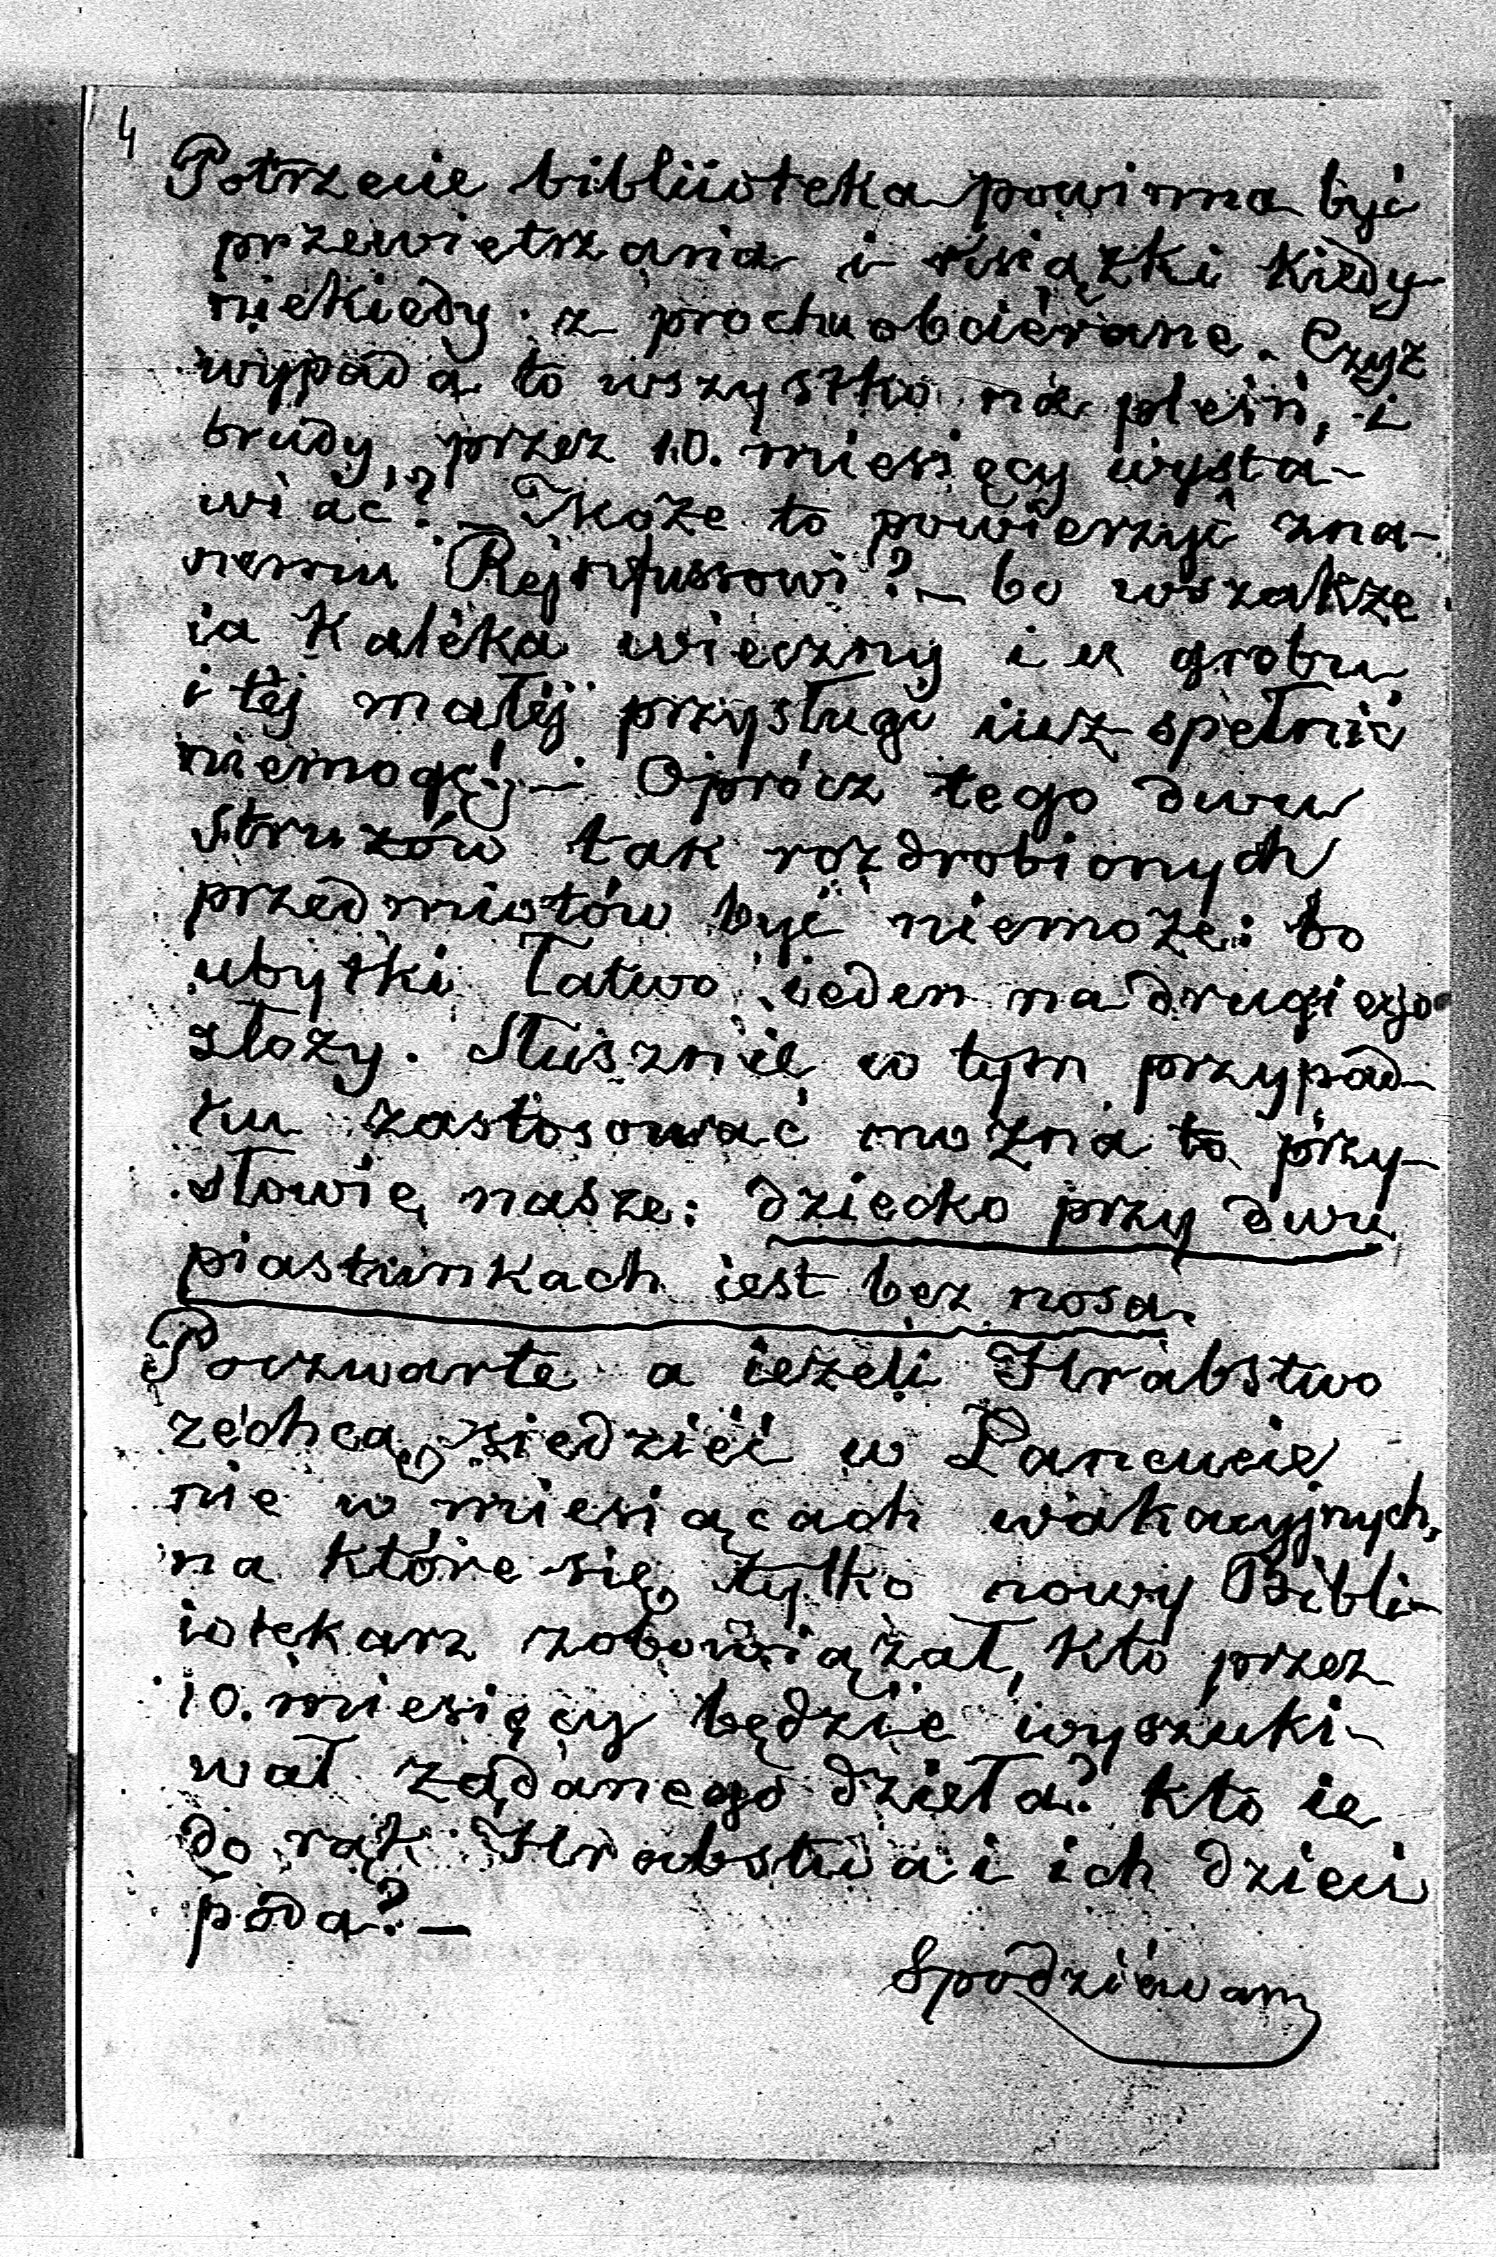 4
Potrzecie bibliioteka powinna być
przewietrzania i książki kiedy
niekiedy z prochu obcierane. Czyż
wypada to wszystko na pleśń, i
brudy przez 10. miesięcy wysta-
wiać? – Može to powierzyć zna-
nemu Rejnfussowi? – bo wszakże
ia kaléka wieczny i u grobu
i téj małéj przysługi iuż spełnić
niemogę! – Oprócz tego dwu
stružów tak rozdrobionych
przedmiotów być niemoże: bo
ubytki łatwo ieden na drugiego
złoży. Słusznie w tym przypad-
ku zastosować można to przy-
słowie nasze: dziecko przy dwu
piastunkach iest bez nosa.
Poczwarte a ieżeli Hrabstwo
zechcą siedzieć w Łańcucie
nie w miesiącach wakacyjnych,
na które się tylko nowy Bibli-
iotekarz zobowiązał, kto przez
10. miesięcy będzie wyszuki-
wał żądanego dzieła? kto ie
do rąk Hrabstwa i ich dzieci
poda? –
Spodziéwam